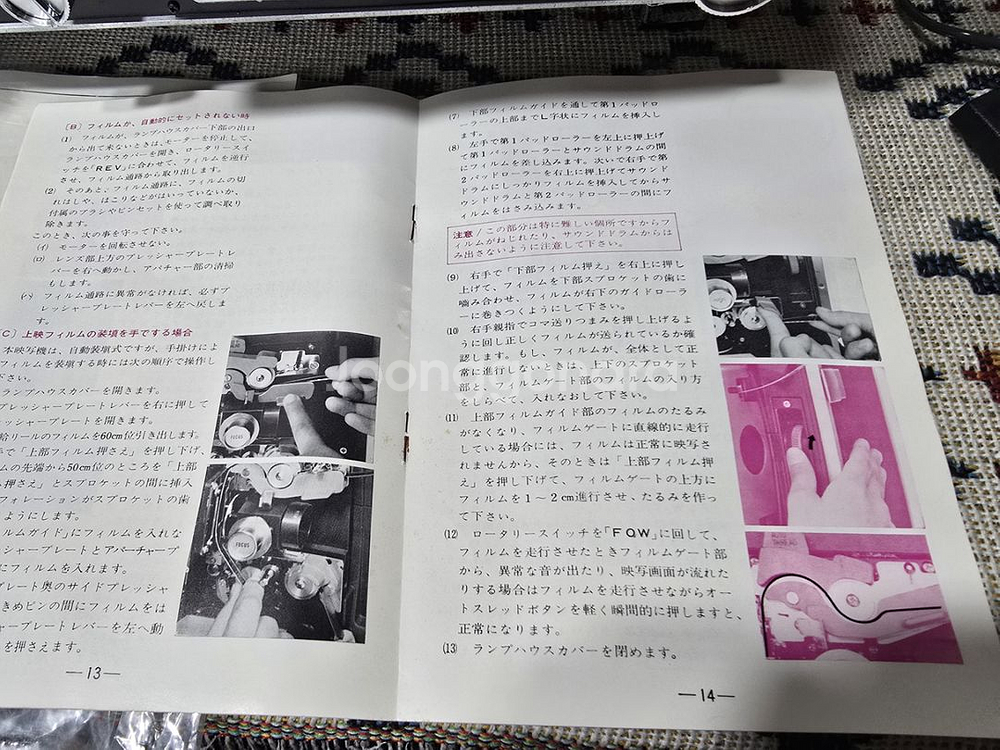 〔B〕フィルムが、自動的にセットされない時
(1) フィルムが、ランプハウスカバー下部の出口
から出て来ないときは、モーターを停止して、
ランプハウスカバーを開き、ロータリースイ
ッチを「REV」に合わせて、フィルムを逆行
させ、フィルム通路から取り出します。
(2) そのあと、フィルム通路に、フィルムの切
れはしや、ほこりなどがはいっていないか、
付属のブラシやピンセットを使って調べ取り
除きます。
このとき、次の事を守って下さい。
(イ) モーターを回転させない。
(ロ) レンズ部上方のプレッシャープレートレ
バーを右へ動かし、アパチャー部の清掃
もします。
(ハ) フィルム通路に異常がなければ、必ずプ
レッシャープレートレバーを左へ戻しま
す。
〔C〕上映フィルムの装填を手でする場合
本映写機は、自動装填式ですが、手掛けによ
フィルムを装填する時には次の順序で操作し
ださい。
ランプハウスカバーを開きます。
プレッシャープレートレバーを右に押して
ッシャープレートを開きます。
給リールのフィルムを60cm位引き出します。
で「上部フィルム押さえ」を押し下げ、
ムの先端から50cm位のところを「上部
ム押さえ」とスプロケットの間に挿入
フォレーションがスプロケットの歯
ようにします。
ルムガイド」にフィルムを入れな
シャープレートとアパーチャープ
にフィルムを入れます。
プレート奥のサイドプレッシャ
きめピンの間にフィルムをは
ャープレートレバーを左へ動
を押さえます。
FOCUS
FOCUS
—13—
(7) 下部フィルムガイドを通して第1パッドロ
ーラーの上部までL字状にフィルムを挿入し
ます。
(8) 左手で第1パッドローラーを左上に押上げ
て第1パッドローラーとサウンドドラムの間
にフィルムを差し込みます。次いで右手で第
2パッドローラーを右上に押上げてサウンド
ドラムにしっかりフィルムを挿入してからサ
ウンドドラムと第2パッドローラーの間にフ
ィルムをはさみ込みます。
注意/この部分は特に難しい個所ですからフ
ィルムがねじれたり、サウンドドラムからは
み出さないように注意して下さい。
(9) 右手で「下部フィルム押え」を右上に押し
上げて、フィルムを下部スプロケットの歯に
噛み合わせ、フィルムが右下のガイドローラ
ーに巻きつくようにして下さい。
(10) 右手親指でコマ送りつまみを押し上げるよ
うに回し正しくフィルムが送られているか確
認します。もし、フィルムが、全体として正
常に進行しないときは、上下のスプロケット
部と、フィルムゲート部のフィルムの入り方
をしらべて、入れなおして下さい。
(11) 上部フィルムガイド部のフィルムのたるみ
がなくなり、フィルムゲートに直線的に走行
している場合には、フィルムは正常に映写さ
れませんから、そのときは「上部フィルム押
え」を押し下げて、フィルムゲートの上方に
フィルムを1〜2cm進行させ、たるみを作っ
て下さい。
(12) ロータリースイッチを「FOW」に回して、
フィルムを走行させたときフィルムゲート部
から、異常な音が出たり、映写画面が流れた
りする場合はフィルムを走行させながらオー
トスレッドボタンを軽く瞬間的に押しますと、
正常になります。
(13) ランプハウスカバーを閉めます。
—14—